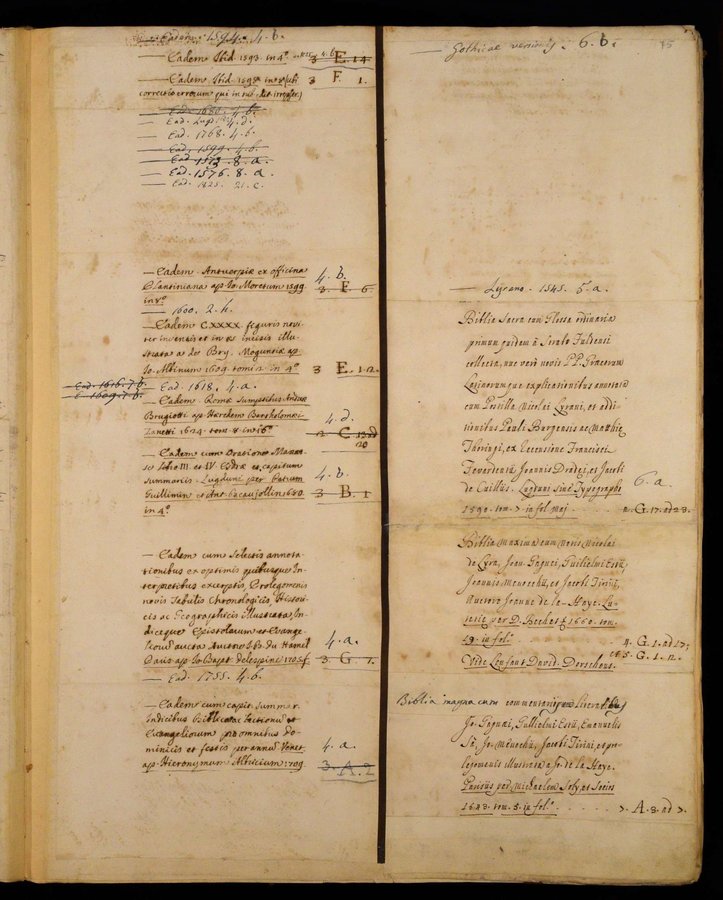 — Eadem. 1594. 4. b.
— Eadem Ibid. 1593. in 4.° 4. b. 3 E. 14
— Eadem Ibid. 1598. in 3 F. 1.
correctio errorum qui in
— Ead. 1680. 4. b.
— Ead. Lugd. 4. d.
— Ead. 1768. 4. b.
— Ead. 1599. 4. b.
— Ead 1573. 8. a.
— Ead. 1576. 8. a.
— Ead. 1825. 21. c.
— Eadem. Antuerpiæ ex officina 4. b.
Plantiniana ap. Io. Moretum 1599 3. E. 6.
in 8.°
— 1600. 2. h.
— Eadem CXXXX figuris novi-
ter inventis et in æs incisis illu-
strata a de Bry. Moguntiæ ap.
Io. Albinum 1609. tomi 2. in 4.° 3 E. 1.12.
Ead. 1616. 7. b. — Ead. 1618. 4. a.
E. 1609. 7. b. — Eadem. Romæ sumptibus Andreæ
Brugiotti ap. Hæredem Bartholomæi 4. d.
Zanetti 1624. tom. 8. in 16.° 2 C. 13. ad
20
— Eadem cum Oratione Manas-
sæ Libro III. et IV. Esdræ et capitum
summariis. Lugduni per Petrum 4. b.
Guillimin et Ant. Beaujollin 1680. 3 B. 1
in 4.°
— Eadem cum selectis annota-
tionibus ex optimis quibusque In-
terpretibus excerptis, Prolegomenis
novis Tabulis Chronologicis, Histori-
cis ac Geographicis illustrata, In-
diceque Epistolarum et Evange-
liorum aucta Auctore I. B. du Hamel 4. a.
Davis. ap. Io. Bapt. Delespine 1705. f. 3 G. 7.
— Ead. 1755. 4. b.
— Eadem cum capit. summar.
Indicibus Biblicæ Lectionum et
Evangeliorum pro omnibus do-
minicis et festis per annum Venet. 4. a.
ap. Hieronymum Albricium 1709. 3. A. 2
— Gothicae versionis. 6. b. 75
— Lyrano. 1545. 5. a.
Biblia Sacra cum Glossa ordinaria
primum quidem a Strabo Fuldensi
collecta, nunc verò novis PP. Græcorum
Latinorumque explicationibus annotata
cum Postilla Nicolai Lyrani, et addi-
tionibus Pauli Burgensis ac Matthiæ
Thoringi, ex recensione Francisci
Fevardentii Joannis Dradei, et Jacobi
de Cuilliis. Lugduni sine Typographo 6. a.
1590. tom. 7. in fol. maj. G. 17. ad 23.
Biblia Maxima cum Notis Nicolai
de Lyra, Joan. Gagnei, Guilielmi Estii,
Joannis Menochii, et Jacobi Tirini,
Auctore Joanne de la Haye. Lu-
tetiæ per D. Bechet 1660. tom.
19. in fol.° 4. G. 1. ad 17;
et 5. G. 1. 12.
Vide Lenfant David. Dorscheus.
Biblia magna cum commentariis
Jo. Gagnæi, Gullielmi Estii, Emanuelis
Sà, Jo. Menochii, Jacobi Tirini, et pro-
legomenis illustrata a Jo. de la Haye.
Parisiis per Michaelem Soly, et Socios
1643. tom. 5. in fol.° 7. A. 3. ad 7.